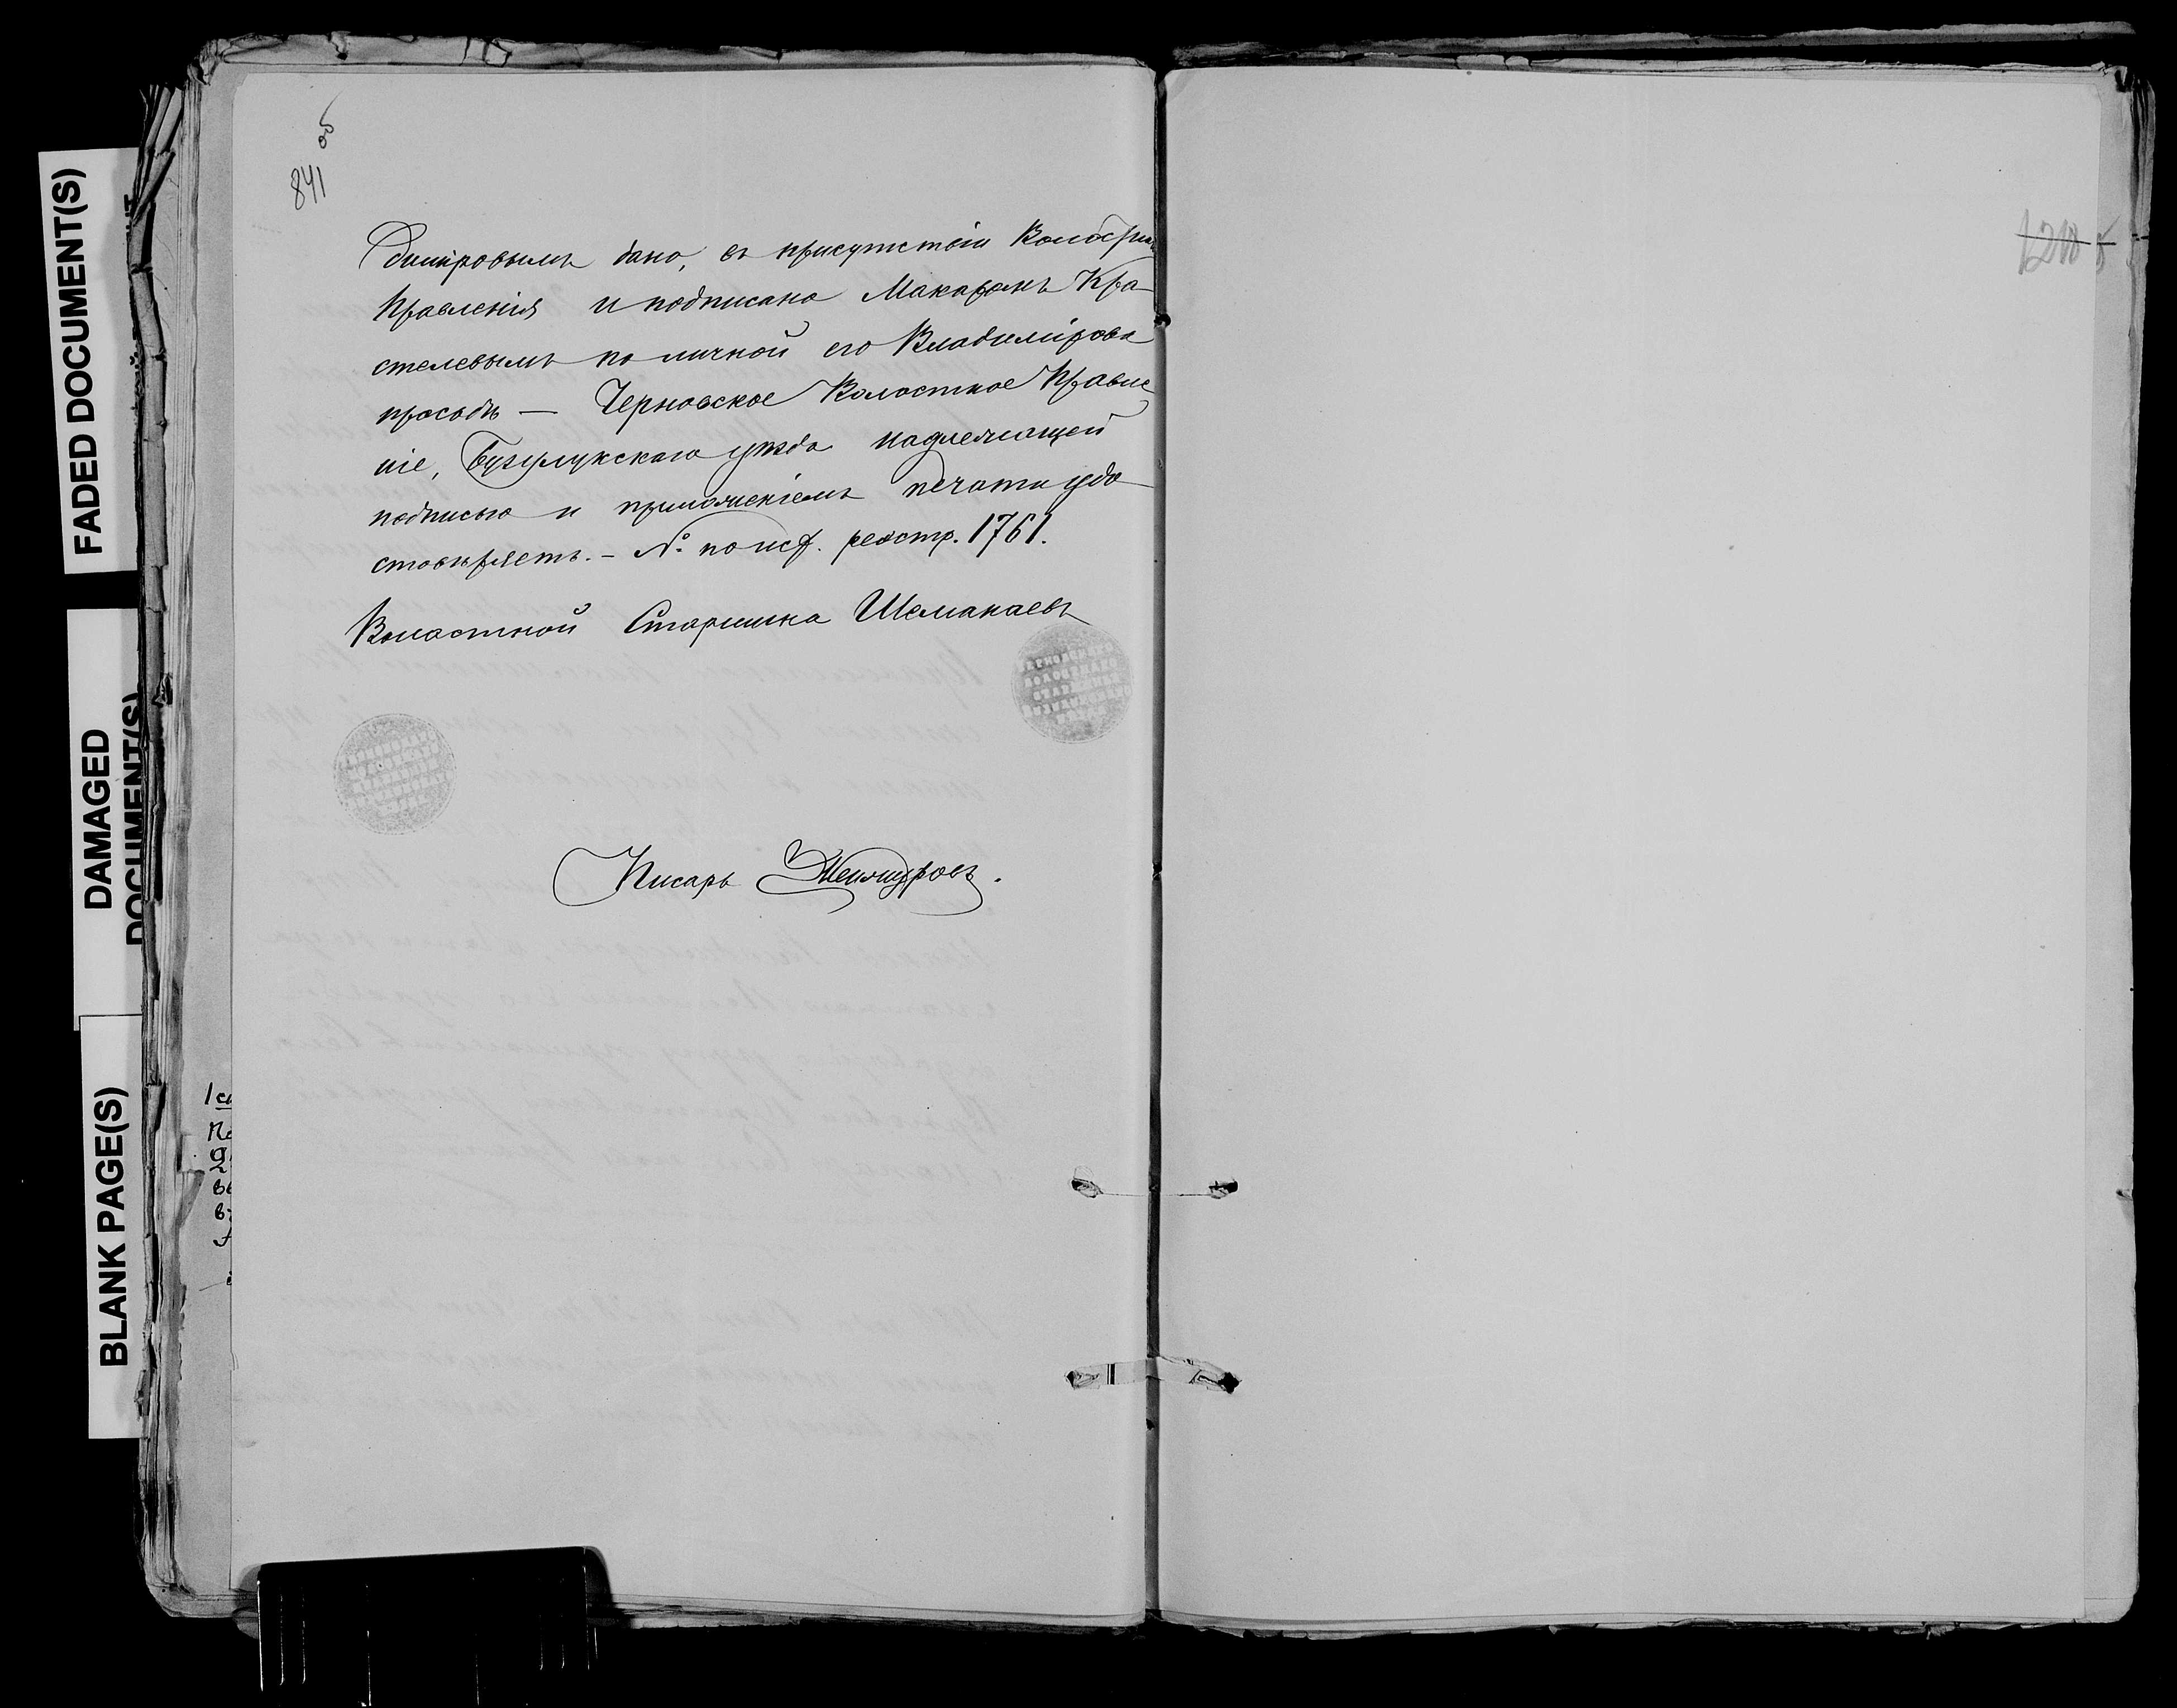 841 об
димировымъ дано, въ присутствіи Волостн.
Правленія и подписано Макаромъ Кра-
стелевымъ по личной его Владимірова
просьбѣ — Черновское Волостное Правле-
ніе, Бузулукскаго уѣзда надлежащей
подписью и приложеніемъ печати удо-
стовѣряетъ. – № по исх. реэстр. 1761.
Волостной Старшина Шеманаевъ
Писарь
1210
FADED DOCUMENT(S)
DAMAGED
DOCUMENT(S)
BLANK PAGE(S)